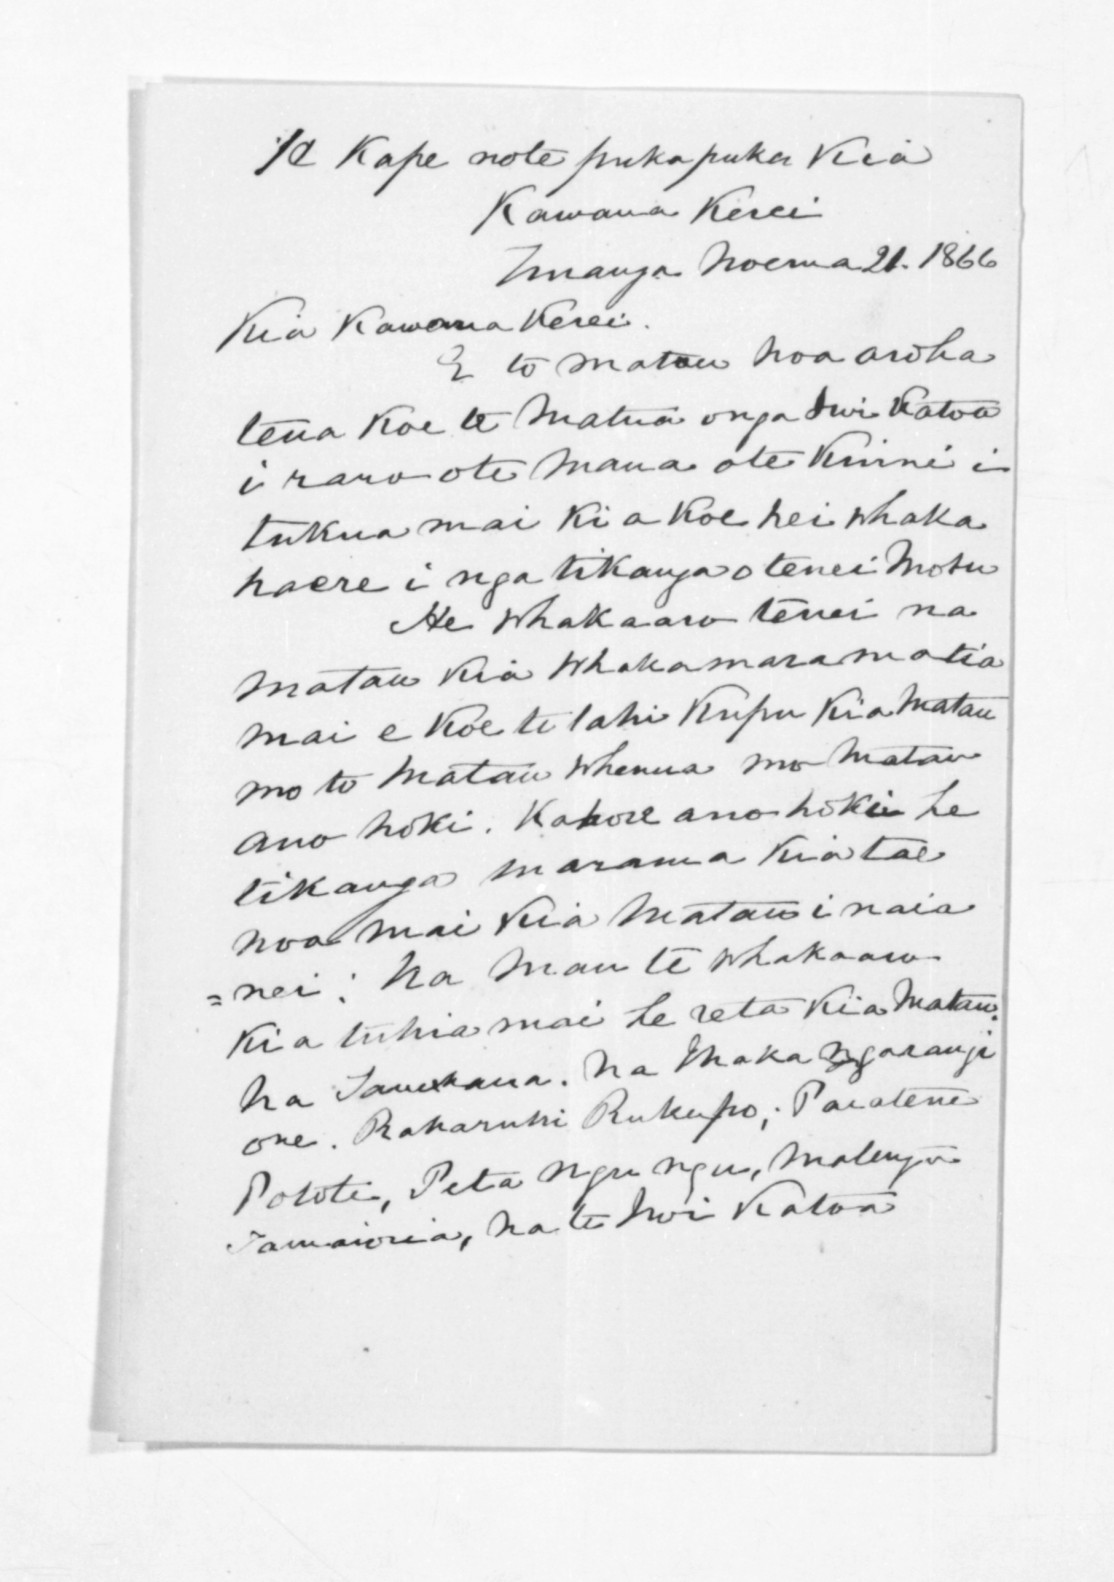 He Kape note pukapuka Kia
Kawana Kerei
Turanga Noema 21. 1866
Kia Kawana Kerei.
E to matou hoa aroha
tena Koe te Matua onga Iwi Katoa
i raro ote Mana ote Kuini i
tukua mai Ki a Koe hei whaka
haere i nga tikanga o tenei Motu
He whakaaro tenei na
matau Kia whakamaramatia
mai e Koe te tahi Kupu Kia Matau
mo to Matau whenua mo Matau
ano hoki. Kahore ano hoki he
tikanga marama Kia tae
noa mai Kia Matau i naia
= nei; Na Mau te whakaaro
Kia tuhia mai he reta Kia Matau.
Na Tamihana. Na Ihaka Ngarangi
one. Raharuhi Rukupo, Paratene
Pototi, Peta Ngu ngu, Matenga
Tamaioria, Na te Iwi Katoa